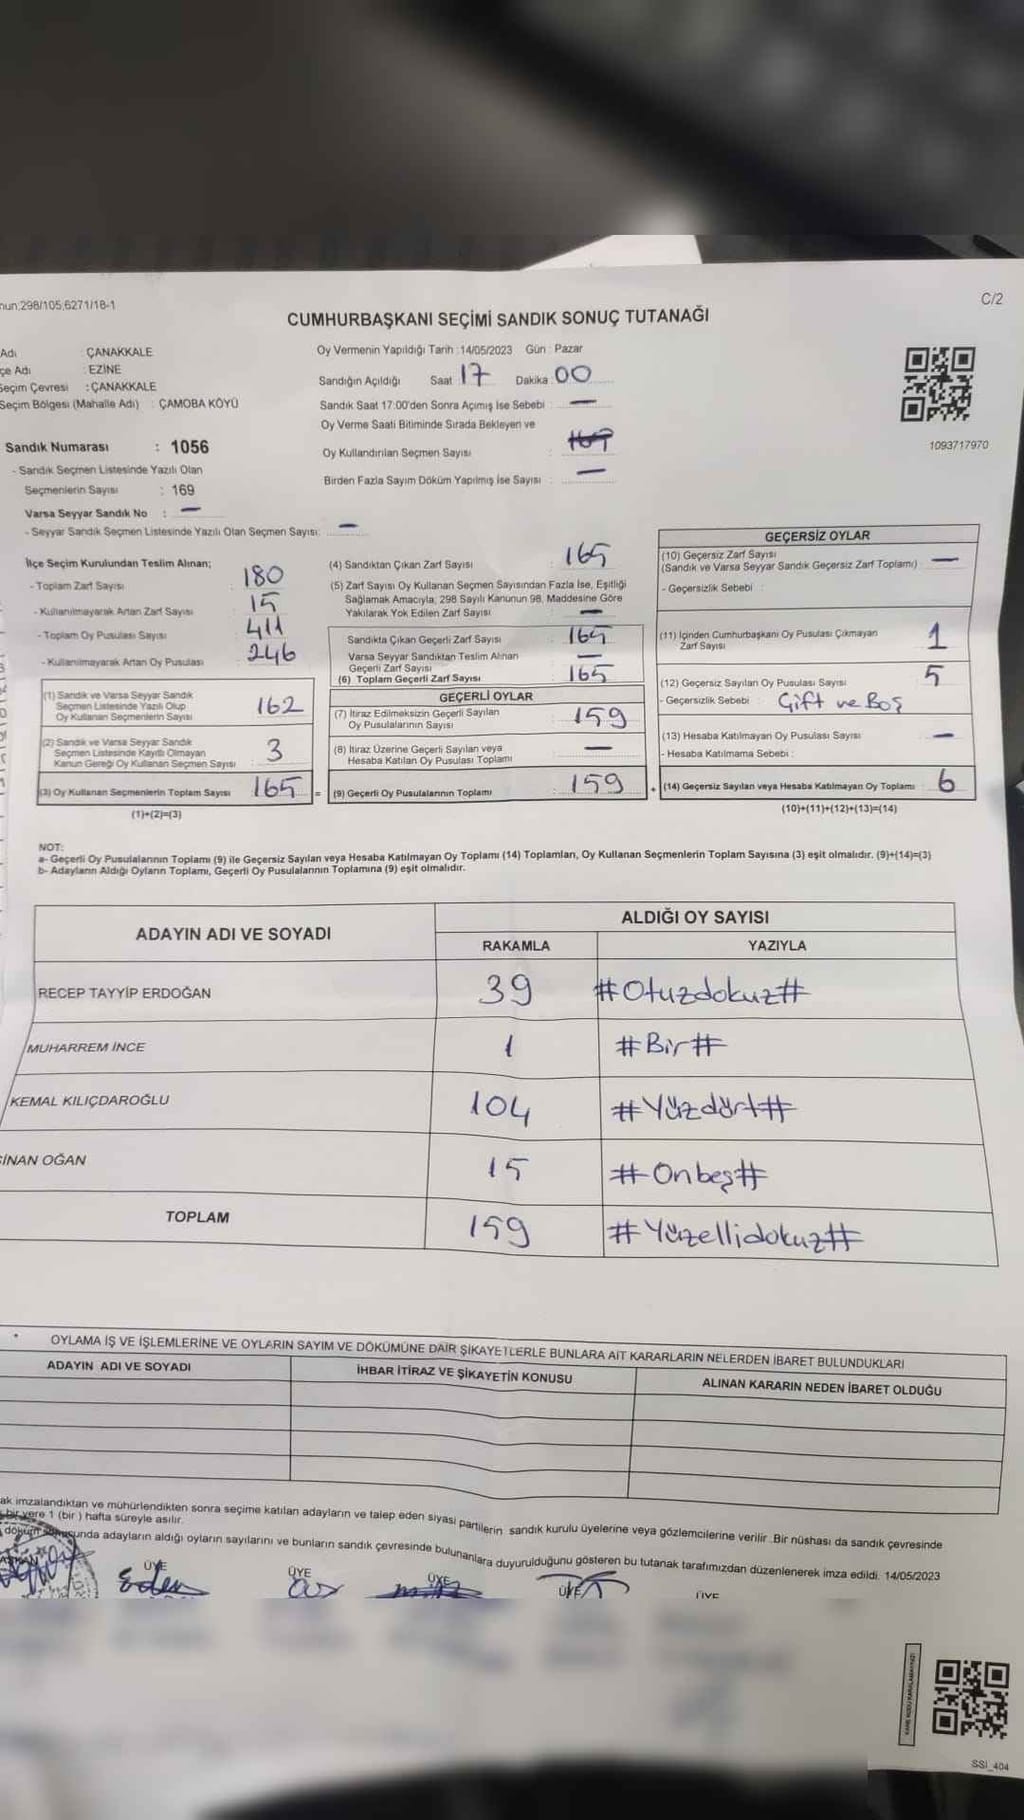 nun:298/105,6271/18-1
C/2
CUMHURBAŞKANI SEÇİMİ SANDIK SONUÇ TUTANAĞI
Adı : ÇANAKKALE
çe Adı : EZİNE
Seçim Çevresi : ÇANAKKALE
Seçim Bölgesi (Mahalle Adı) : ÇAMOBA KÖYÜ
Sandık Numarası : 1056
- Sandık Seçmen Listesinde Yazılı Olan
Seçmenlerin Sayısı : 169
Varsa Seyyar Sandık No : —
- Seyyar Sandık Seçmen Listesinde Yazılı Olan Seçmen Sayısı: —
Oy Vermenin Yapıldığı Tarih :14/05/2023 Gün : Pazar
Sandığın Açıldığı Saat : 17 Dakika : 00
Sandık Saat 17:00'den Sonra Açımış İse Sebebi : —
Oy Verme Saati Bitiminde Sırada Bekleyen ve
Oy Kullandırılan Seçmen Sayısı : 169
Birden Fazla Sayım Döküm Yapılmış İse Sayısı : —
1093717970
İlçe Seçim Kurulundan Teslim Alınan;
- Toplam Zarf Sayısı : 180
- Kullanılmayarak Artan Zarf Sayısı : 15
- Toplam Oy Pusulası Sayısı : 411
- Kullanılmayarak Artan Oy Pusulası : 246
(1) Sandık ve Varsa Seyyar Sandık
Seçmen Listesinde Yazılı Olup
Oy Kullanan Seçmenlerin Sayısı 162
(2) Sandık ve Varsa Seyyar Sandık
Seçmen Listesinde Kayıtlı Olmayan
Kanun Gereği Oy Kullanan Seçmen Sayısı 3
(3) Oy Kullanan Seçmenlerin Toplam Sayısı 165 =
(1)+(2)=(3)
(4) Sandıktan Çıkan Zarf Sayısı : 165
(5) Zarf Sayısı Oy Kullanan Seçmen Sayısından Fazla İse, Eşitliği
Sağlamak Amacıyla, 298 Sayılı Kanunun 98. Maddesine Göre
Yakılarak Yok Edilen Zarf Sayısı : —
Sandıkta Çıkan Geçerli Zarf Sayısı : 165
Varsa Seyyar Sandıktan Teslim Alınan
Geçerli Zarf Sayısı : —
(6) Toplam Geçerli Zarf Sayısı : 165
GEÇERLİ OYLAR
(7) İtiraz Edilmeksizin Geçerli Sayılan
Oy Pusulalarının Sayısı : 159
(8) İtiraz Üzerine Geçerli Sayılan veya
Hesaba Katılan Oy Pusulası Toplamı : —
(9) Geçerli Oy Pusulalarının Toplamı : 159 +
GEÇERSİZ OYLAR
(10) Geçersiz Zarf Sayısı
(Sandık ve Varsa Seyyar Sandık Geçersiz Zarf Toplamı) : —
- Geçersizlik Sebebi :
(11) İçinden Cumhurbaşkanı Oy Pusulası Çıkmayan
Zarf Sayısı 1
(12) Geçersiz Sayılan Oy Pusulası Sayısı : 5
- Geçersizlik Sebebi : Çift ve Boş
(13) Hesaba Katılmayan Oy Pusulası Sayısı : —
- Hesaba Katılmama Sebebi :
(14) Geçersiz Sayılan veya Hesaba Katılmayan Oy Toplamı : 6
(10)+(11)+(12)+(13)=(14)
NOT:
a- Geçerli Oy Pusulalarının Toplamı (9) ile Geçersiz Sayılan veya Hesaba Katılmayan Oy Toplamı (14) Toplamları, Oy Kullanan Seçmenlerin Toplam Sayısına (3) eşit olmalıdır. (9)+(14)=(3)
b- Adayların Aldığı Oyların Toplamı, Geçerli Oy Pusulalarının Toplamına (9) eşit olmalıdır.
ADAYIN ADI VE SOYADI
ALDIĞI OY SAYISI
RAKAMLA YAZIYLA
RECEP TAYYİP ERDOĞAN 39 #Otuzdokuz#
MUHARREM İNCE 1 #Bir#
KEMAL KILIÇDAROĞLU 104 #Yüzdört#
SİNAN OĞAN 15 #Onbeş#
TOPLAM 159 #Yüzellidokuz#
OYLAMA İŞ VE İŞLEMLERİNE VE OYLARIN SAYIM VE DÖKÜMÜNE DAİR ŞİKAYETLERLE BUNLARA AİT KARARLARIN NELERDEN İBARET BULUNDUKLARI
ADAYIN ADI VE SOYADI İHBAR İTİRAZ VE ŞİKAYETİN KONUSU ALINAN KARARIN NEDEN İBARET OLDUĞU
ak imzalandıktan ve mühürlendikten sonra seçime katılan adayların ve talep eden siyasi partilerin sandık kurulu üyelerine veya gözlemcilerine verilir. Bir nüshası da sandık çevresinde
bir yere 1 (bir) hafta süreyle asılır.
döküm sonucunda adayların aldığı oyların sayılarını ve bunların sandık çevresinde bulunanlara duyurulduğunu gösteren bu tutanak tarafımızdan düzenlenerek imza edildi. 14/05/2023
BAŞKAN ÜYE ÜYE ÜYE ÜYE ÜYE
KARE KODU KARALAMAYINIZ!
SSİ_404